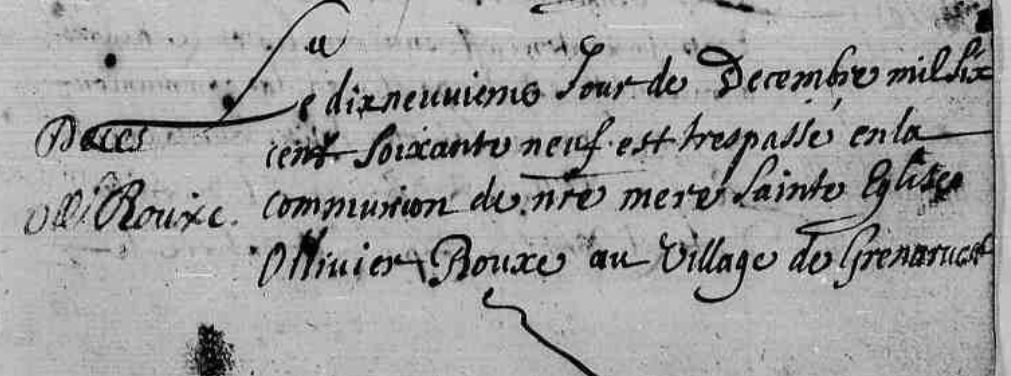 Le dixneuuieme Jour de Decembre mil six
Deces
cent Soixante neuf est trespassé en la
communion de nre mere Sainte Eglise
Olli. Rouxe.
Ollivier Rouxe au Village de